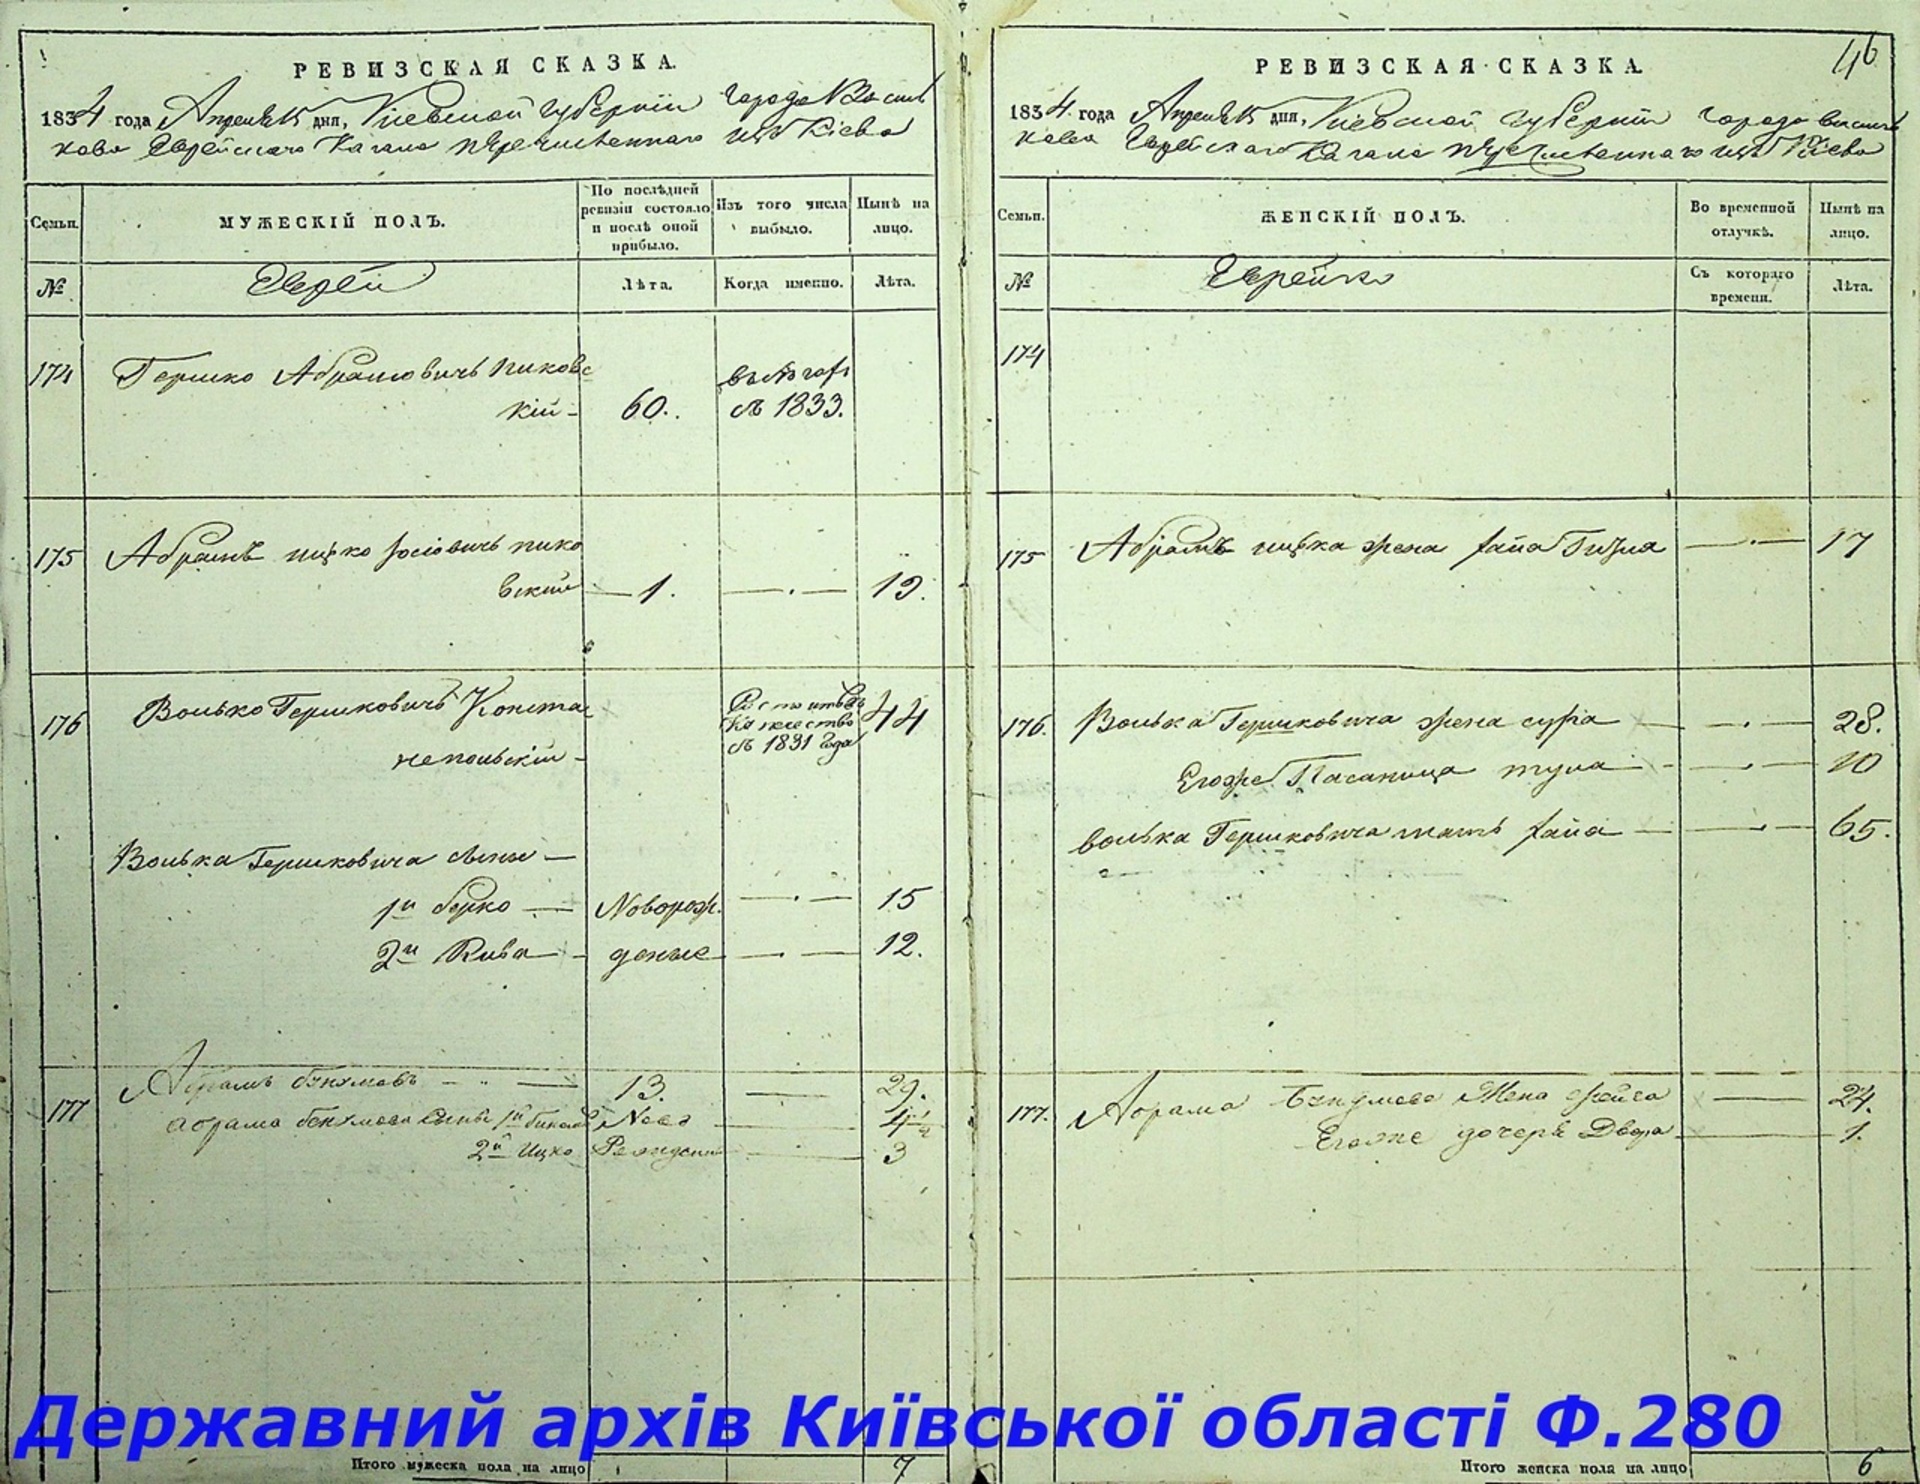 РЕВИЗСКАЯ СКАЗКА.
1834 года Апреля 15 дня, Киевской губернии города Василь
кова Еврейского Кагала перечисленного изъ Кіева
Семьи.
МУЖЕСКІЙ ПОЛЪ.
По послѣдней ревизіи состояло и послѣ оной прибыло.
Изъ того числа выбыло.
Нынѣ на лицо.
№
Евреи
Лѣта.
Когда именно.
Лѣта.
174 Гершко Абрамовичъ пиковс
кій 60. въ 1833.
175 Абрамъ ицко Іосіовичъ пико
вскии 1. 19.
176 Волько Гершковичъ Конста 44
непольскіи
съ 1831 года
Волька Гершковича сыны
1й берко Новорож 15
2й Кива деные 12.
177 Абрамъ 13. 29.
Абрама сыны 1й Ново 4½
2й Ицко Рожденн 3
Итого мужеска пола на лицо 7
46
РЕВИЗСКАЯ СКАЗКА
1834 года Апреля 15 дня, Киевской губернии города василь
кова Еврейского Кагала перечисленнаго изъ Кіева
Семьи.
ЖЕНСКІЙ ПОЛЪ.
Во временной отлучкѣ.
Нынѣ на лицо.
№
Еврейки
Съ котораго времени.
Лѣта.
174
175 Абрамъ ицька жена хайа 17
176. Волька Гершковича жена сура 28.
Егоже 10
волька Гершковича мать хайа 65.
177. Абрама Жена 24.
Егоже дочерь Двора 1.
Итого женска пола на лицо 6
Державний архів Київської області Ф.280